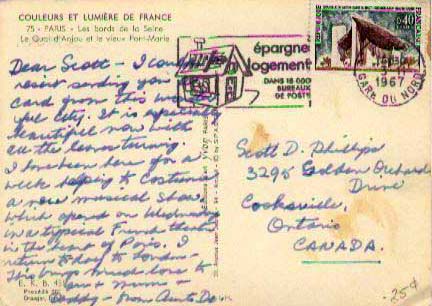 COULEURS ET LUMIÈRE DE FRANCE
75 - PARIS - Les bords de la Seine
Le Quai d'Anjou et le vieux Pont-Marie
Dear Scott - I
resist sending you
card from this
ful city. It is especially
beautiful now with
all the leaves turning.
I have been here for a
week helping to Costume
a new musical show,
which opened on Wednesday
in a typical French theatre
in the heart of
return today to London -
This brings much love to
you & mum &
Daddy - from Aunt
E. K. B.
épargne
logement
DANS 18 000
BUREAUX
DE POSTE
!
1967
GARE DU NORD
0,40
Scott D. Phillips
3295 Golden Orchard
Drive
Cooksville,
Ontario
CANADA.
-25¢